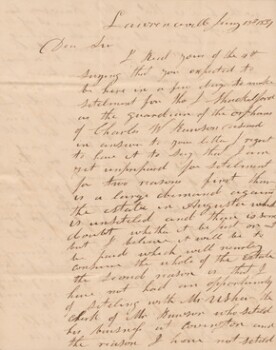 Lawrenceville Jany 13th 1837
Dear Sir
I Recd yours of the 9th
saying that you expected to
be here in a few days to make
setelment for tho J Shackelford
as the guardian of the orphans
of Charles W Rawson deceased
in answer to your letter I regret
to have it to say that I am
yet unprepared for setelment
for two reasons first there
is a large demand against
the estate in Augusta which
is unsetled and there is some
doubt whether it be just or not
but I believe it will be to
be paid which will nearly
consume the whole of the estate
the second reason is that I
have not had an opportunity
of setelling with Mr
clerk of Mr Rawson who setled
his buisness at Covington and
the reason I have not setled